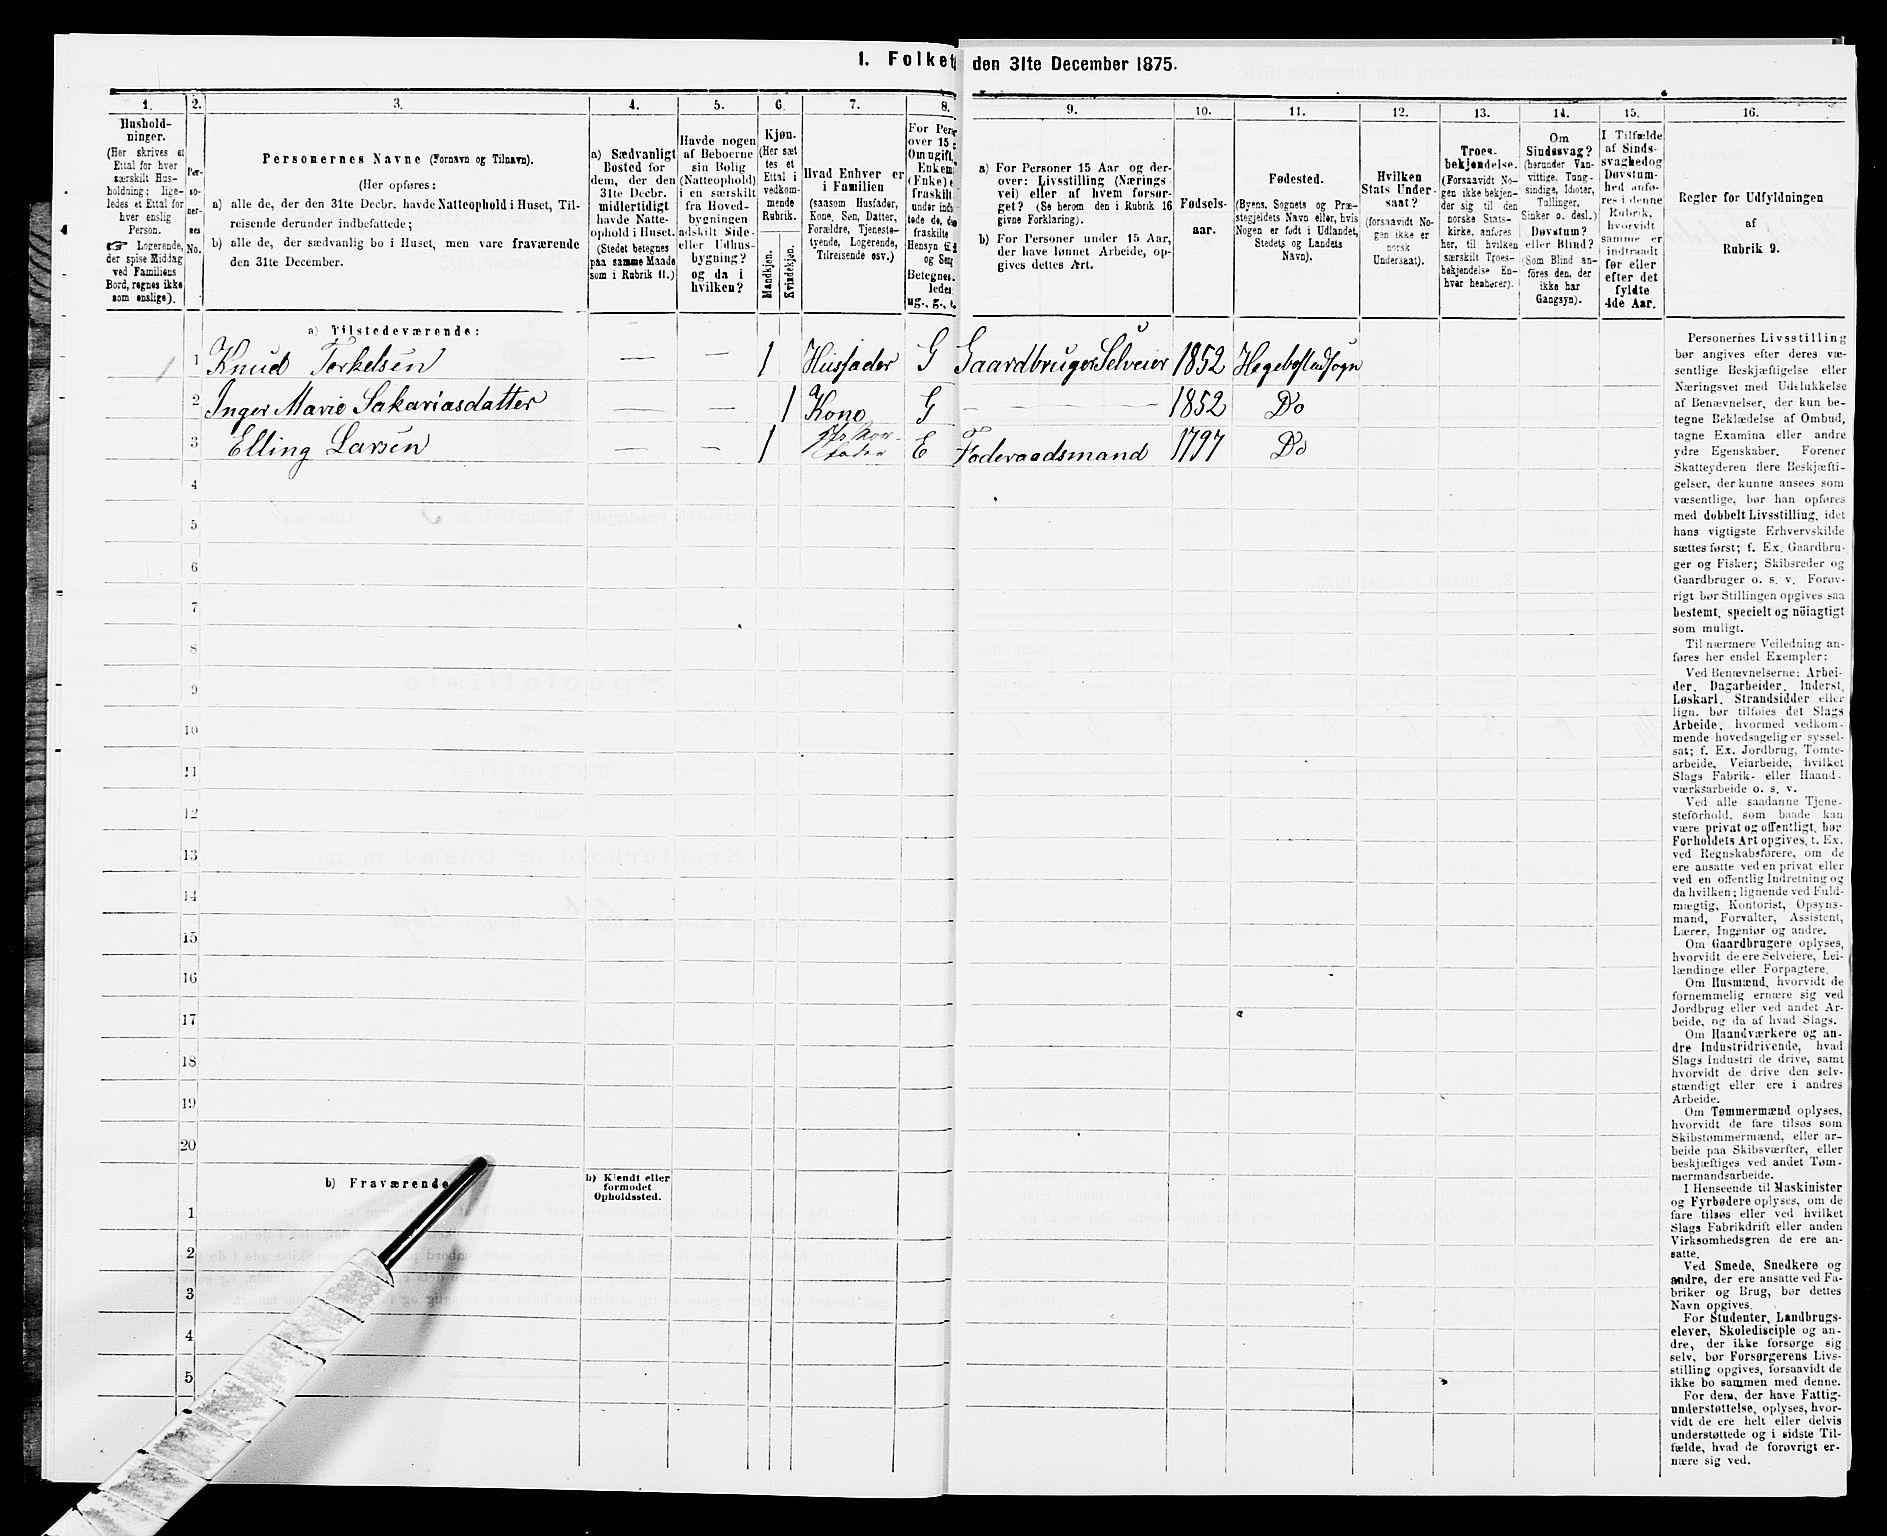 1. Folket
den 31te December 1875.
1.
Hushold-
ninger.
(Her skrives et
Ettal for hver
særskilt Hus-
holdning; lige-
ledes et Ettal for
hver enslig
Person.
☞ Logerende,
der spise Middag
ved Familiens
Bord, regnes ikke
som enslige).
2.
Per-
so-
ner-
nes
No.
3.
Personernes Navne (Fornavn og Tilnavn).
(Her opføres:
a) alle de, der den 31te Decbr. havde Natteophold i Huset, Til-
reisende derunder indbefattede;
b) alle de, der sædvanlig bo i Huset, men vare fraværende
den 31te December.
4.
a) Sædvanligt
Bosted for
dem, der den
31te Decbr.
midlertidigt
havde Natte-
ophold i Huset.
(Stedet betegnes
paa samme Maade
som i Rubrik 11.)
5.
Havde nogen
af Beboerne
sin Bolig
(Natteophold)
i en særskilt
fra Hoved-
bygningen
adskilt Side-
eller Udhus-
bygning?
og da i
hvilken?
6.
Kjøn.
(Her sæt
tes et
Ettal i
vedkom-
mende
Rubrik.
Mandkjøn.
Kvindekjøn.
7.
Hvad Enhver er
i Familien
(saasom Husfader,
Kone, Sen, Datter,
Forældre, Tjeneste-
tyende, Logerende,
Tilreisende osv.)
8.
For Pers
over 15
Om ugift,
Enkem
(Enke) e
fraskilt
under inds
tede de, de
fraskilte
Hensyn til
og Seng
Betegnes
ledes
ug., g., e.
9.
a) For Personer 15 Aar og der-
over: Livsstilling (Nærings
vei) eller af hvem forsør-
get? (Se herom den i Rubrik 16
givne Forklaring).
b) For Personer under 15 Aar,
der have lønnet Arbeide, op-
gives dettes Art.
10.
Fødsels-
aar.
11.
Fødested.
(Byens, Sognets og Præ-
stegjeldets Navn eller, hvis
Nogen er født i Udlandet,
Stedets og Landets
Navn).
12.
Hvilken
Stats Under-
saat?
(forsaavidt No-
gen ikke er
norsk
Undersaat).
13.
Troes-
bekjendelse.
(Forsaavidt No-
gen ikke bekjen-
der sig til den
norske Stats-
kirke, anføres
her, til hvilken
særskilt Troes-
bekjendelse En-
hver henhører).
14.
Om
Sindssvag?
(herunder Van-
vittige, Tung-
sindige, Idioter,
Tullinger,
Sinker o. desl.)
Døvstum?
eller Blind?
(Som Blind an-
føres den, der
ikke har
Gangsyn).
15.
I Tilfælde
af Sinds-
svaghed og
Døvstum-
hed anfø-
res i denne
Rubrik,
hvorvidt
samme er
indtraadt
før eller
efter det
fyldte
4de Aar.
16.
Regler for Udfyldningen
af
Rubrik 9.
a) Tilstedeværende:
1 1 Knud Torkelsen — — 1 Husfader G Gaardbruger Selveier 1852 Hegebostadsogn
2 Inger Marie Sakariasdatter — — 1 Kone G — — — 1852 Do
3 Elling Larsen — — 1 E Føderaadsmand 1797 Do
4
5
6
7
8
9
10
11
12
13
14
15
16
17
18
19
20
b) Fraværende
b) Kjendt eller
formodet
Opholdssted.
1
2
3
4
5
Personernes Livsstilling
bør angives efter deres væ-
sentlige Beskjæftigelse eller
Næringsvei med Udelukkelse
af Benævnelser, der kun be-
tegne Beklædelse af Ombud,
tagne Examina eller andre
ydre Egenskaber. Forener
Skatteyderen flere Beskjæfti-
gelser, der kunne ansees som
væsentlige, bør han opføres
med dobbelt Livsstilling, idet
hans vigtigste Erhvervskilde
sættes først; f. Ex. Gaardbru-
ger og Fisker; Skibsreder og
Gaardbruger o. s. v. Forøv-
rigt bør Stillingen opgives saa
bestemt, specielt og nöiagtigt
som muligt.
Til nærmere Veiledning an-
føres her endel Exempler:
Ved Benævnelserne: Arbei-
der, Dagarbeider, Inderst,
Løskarl, Strandsidder eller
lign. bør tilføies det Slags
Arbeide, hvormed vedkom-
mende hovedsagelig er syssel-
sat; f. Ex. Jordbrug, Tomte-
arbeide, Veiarbeide, hvilket
Slags Fabrik- eller Haand-
værksarbeide o. s. v.
Ved alle saadanne Tjene-
steforhold, som baade kan
være privat og offentligt, bør
Forholdets Art opgives, t. Ex.
ved Regnskabsførere, om de
ere ansatte ved en privat eller
ved en offentlig Indretning og
da hvilken; lignende ved Fuld-
mægtig, Kontorist, Opsyns-
mand, Forvalter, Assistent,
Lærer, Ingeniør og andre.
Om Gaardbrugere oplyses,
hvorvidt de ere Selveiere, Lei-
lændinge eller Forpagtere.
Om Husmænd, hvorvidt de
fornemmelig ernære sig ved
Jordbrug eller ved andet Ar-
beide, og da af hvad Slags.
Om Haandværkere og an-
dre Industridrivende, hvad
Slags Industri de drive, samt
hvorvidt de drive den selv-
stændigt eller ere i andres
Arbeide.
Om Tømmermænd oplyses,
hvorvidt de fare tilsøs som
Skibstømmermænd, eller ar-
beide paa Skibsværfter, eller
beskjæftiges ved andet Tøm-
mermandsarbeide.
I Henseende til Maskinister
og Fyrbødere oplyses, om de
fare tilsøs eller ved hvilket
Slags Fabrikdrift eller anden
Virksomhedsgren de ere an-
satte.
Ved Smede, Snedkere og
andre, der ere ansatte ved Fa-
briker og Brug, bør dettes
Navn opgives.
For Studenter, Landbrugs-
elever, Skoledisciple og an-
dre, der ikke forsørge sig
selv, bør Forsørgerens Livs-
stilling opgives, forsaavidt de
ikke bo sammen med denne.
For dem, der have Fattig-
understøttelse, oplyses, hvor-
vidt de ere helt eller delvis
understøttede og i sidste Til-
fælde, hvad de forøvrigt er-
nære sig ved.